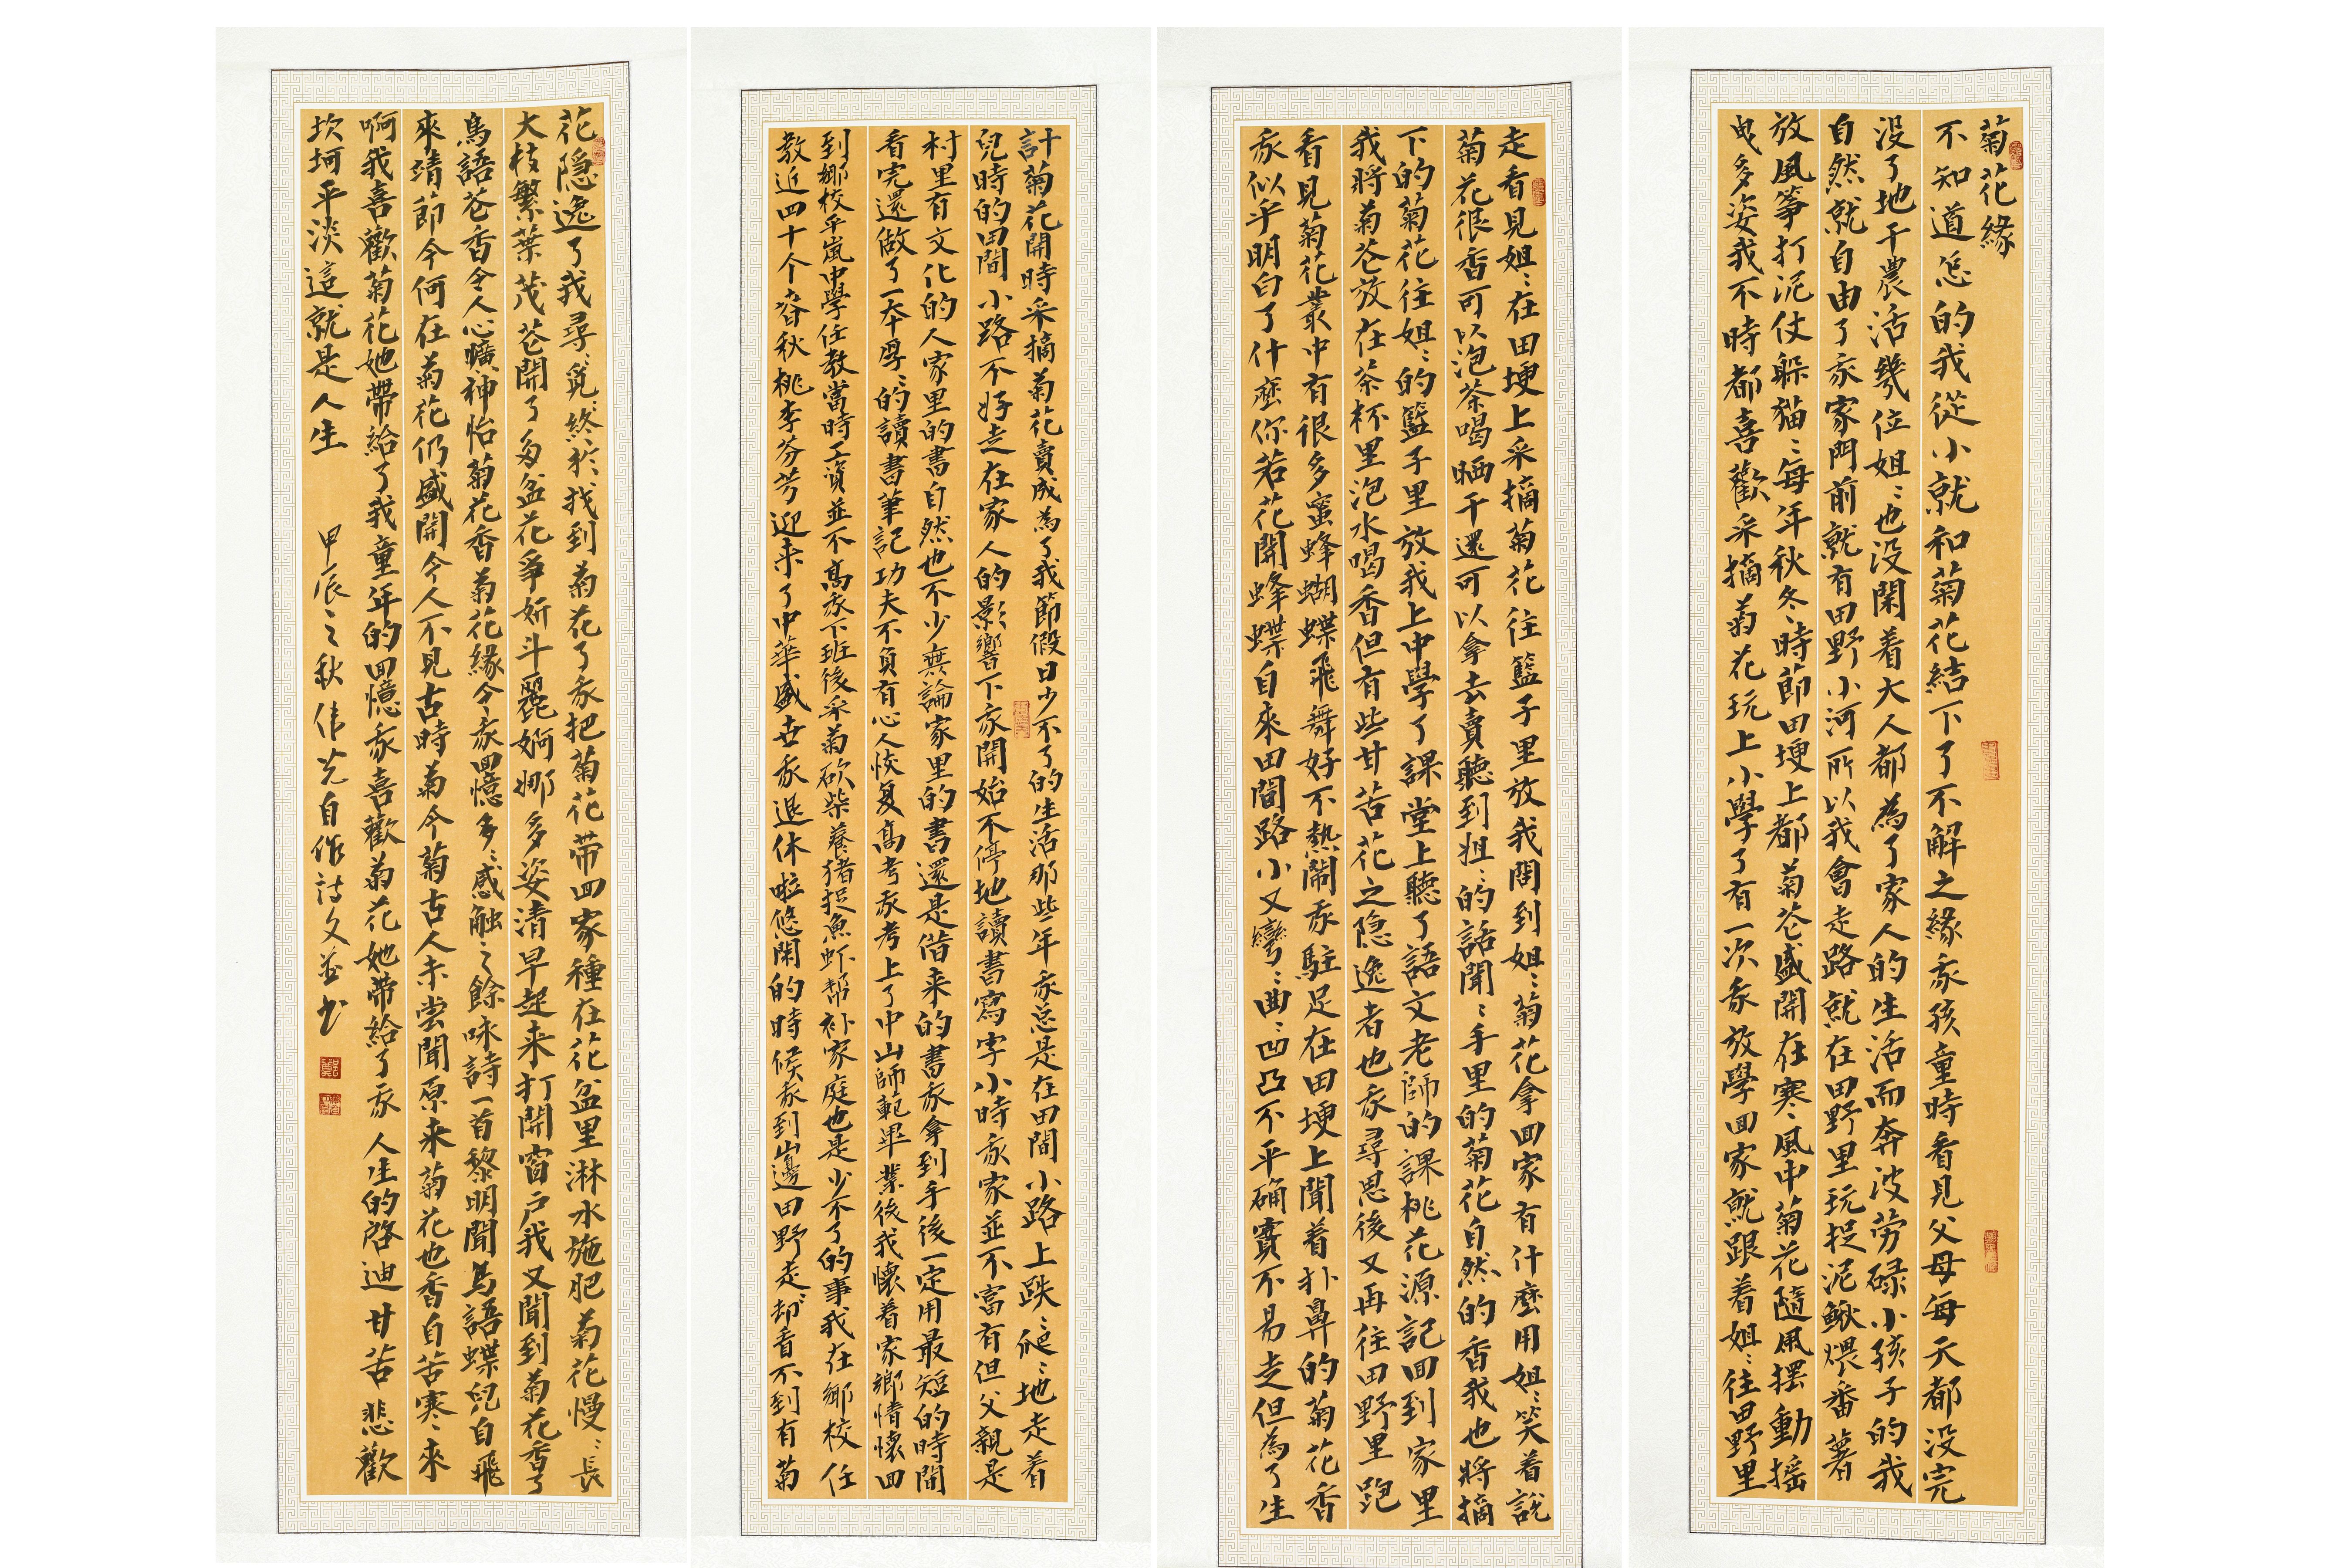 菊花緣
不知道怎的我從小就和菊花結下了不解之緣我孩童時看見父母每天都没完
没了地干農活幾位姐〻也没閑着大人都為了家人的生活而奔波勞碌小孩子的我
自然就自由了我家門前就有田野小河所以我會走路就在田野里玩捉泥鰍煨番薯
放風筝打泥仗躲猫〻每年秋冬時節田埂上都菊花盛開在寒風中菊花隨風摆動摇
曳多姿我不時都喜歡采摘菊花玩上小學了有一次我放學回家就跟着姐〻往田野里
走看見姐〻在田埂上采摘菊花往籃子里放我問到姐〻菊花拿回家有什麼用姐〻笑着說
菊花很香可以泡茶喝晒干還可以拿去賣聽到姐〻的話聞〻手里的菊花自然的香我也將摘
下的菊花往姐〻的籃子里放我上中學了課堂上聽了語文老師的課桃花源記回到家里
我將菊花放在茶杯里泡水喝香但有些甘苦花之隐逸者也我尋思後又再往田野里跑
看見菊花叢中有很多蜜蜂蝴蝶飛舞好不熱鬧我駐足在田埂上聞着扑鼻的菊花香
我似乎明白了什麼你若花開蜂蝶自來田間路小又彎〻曲〻凹凸不平确實不易走但為了生
計菊花開時采摘菊花賣成為了我節假日少不了的生活那些年我总是在田間小路上跌〻爬〻地走着
兒時的田間小路不好走在家人的影響下我開始不停地讀書寫字小時我家並不富有但父親是
村里有文化的人家里的書自然也不少無論家里的書還是借来的書我拿到手後一定用最短的時間
看完還做了一本厚〻的讀書筆記功夫不負有心人恢复高考我考上了中山師範畢業後我懷着家鄉情懷回
到鄉校平嵐中學任教當時工資並不高我下班後采菊砍柴養猪捉魚虾幫补家庭也是少不了的事我在鄉校任
教近四十个春秋桃李芬芳迎来了中華盛世我退休啦悠閑的時候我到山邊田野走〻却看不到有菊
花隐逸了我尋〻覓〻終於找到菊花了我把菊花带回家種在花盆里淋水施肥菊花慢〻長
大枝繁葉茂花開了多盆花争妍斗麗婀娜多姿清早起来打開窗户我又聞到菊花香了
鳥語花香令人心曠神怡菊花香菊花緣令我回憶多〻感触之餘咏詩一首黎明聞鳥語蝶兒自飛
來靖節今何在菊花仍盛開今人不見古時菊今菊古人未尝聞原来菊花也香自苦寒來
啊我喜歡菊花她帶給了我童年的回憶我喜歡菊花她帶給了我人生的啓迪甘苦悲歡
坎坷平淡這就是人生
甲辰之秋伟光自作詩文並书